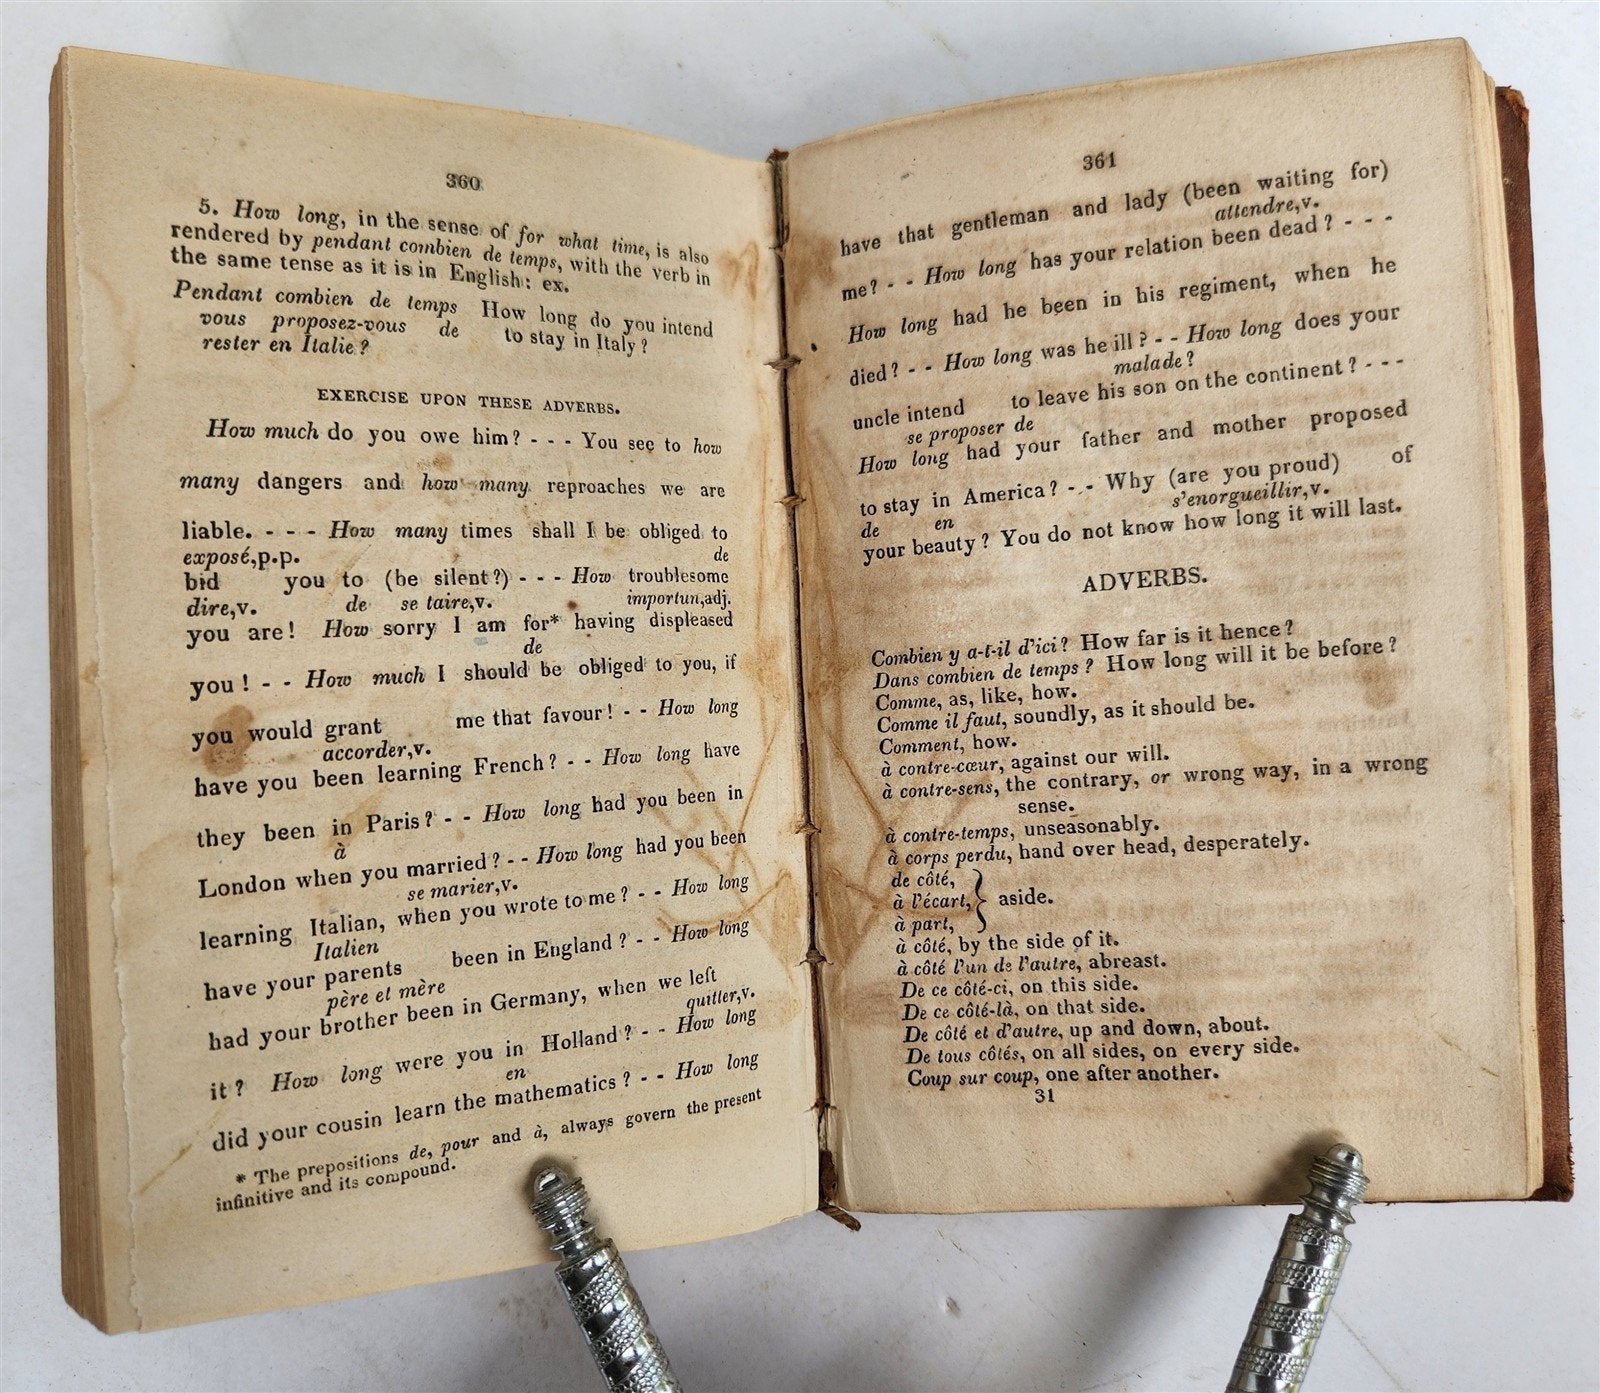 360
5. How long, in the sense of for what time, is also
rendered by pendant combien de temps, with the verb in
the same tense as it is in English: ex.
Pendant combien de temps How long do you intend
vous proposez-vous de to stay in Italy?
rester en Italie?
EXERCISE UPON THESE ADVERBS.
How much do you owe him? - - - You see to how
many dangers and how many reproaches we are
liable. - - - How many times shall I be obliged to
exposé,p.p. de
bid you to (be silent?) - - - How troublesome
dire,v. de se taire,v. importun,adj.
you are! How sorry I am for* having displeased
de
you! - - How much I should be obliged to you, if
you would grant me that favour! - - How long
accorder,v.
have you been learning French? - - How long have
they been in Paris? - - How long had you been in
à
London when you married? - - How long had you been
se marier,v.
learning Italian, when you wrote to me? - - How long
Italien
have your parents been in England? - - How long
père et mère
had your brother been in Germany, when we left
quitter,v.
it? How long were you in Holland? - - How long
en
did your cousin learn the mathematics? - - How long
* The prepositions de, pour and à, always govern the present
infinitive and its compound.
361
have that gentleman and lady (been waiting for)
attendre,v.
me? - - How long has your relation been dead? - - -
How long had he been in his regiment, when he
died? - - How long was he ill? - - How long does your
malade?
uncle intend to leave his son on the continent? - - -
se proposer de
How long had your father and mother proposed
to stay in America? - - Why (are you proud) of
de en s'enorgueillir,v.
your beauty? You do not know how long it will last.
ADVERBS.
Combien y a-t-il d'ici? How far is it hence?
Dans combien de temps? How long will it be before?
Comme, as, like, how.
Comme il faut, soundly, as it should be.
Comment, how.
à contre-cœur, against our will.
à contre-sens, the contrary, or wrong way, in a wrong
sense.
à contre-temps, unseasonably.
à corps perdu, hand over head, desperately.
de côté,
à l'écart, } aside.
à part,
à côté, by the side of it.
à côté l'un de l'autre, abreast.
De ce côté-ci, on this side.
De ce côté-là, on that side.
De côté et d'autre, up and down, about.
De tous côtés, on all sides, on every side.
Coup sur coup, one after another.
31